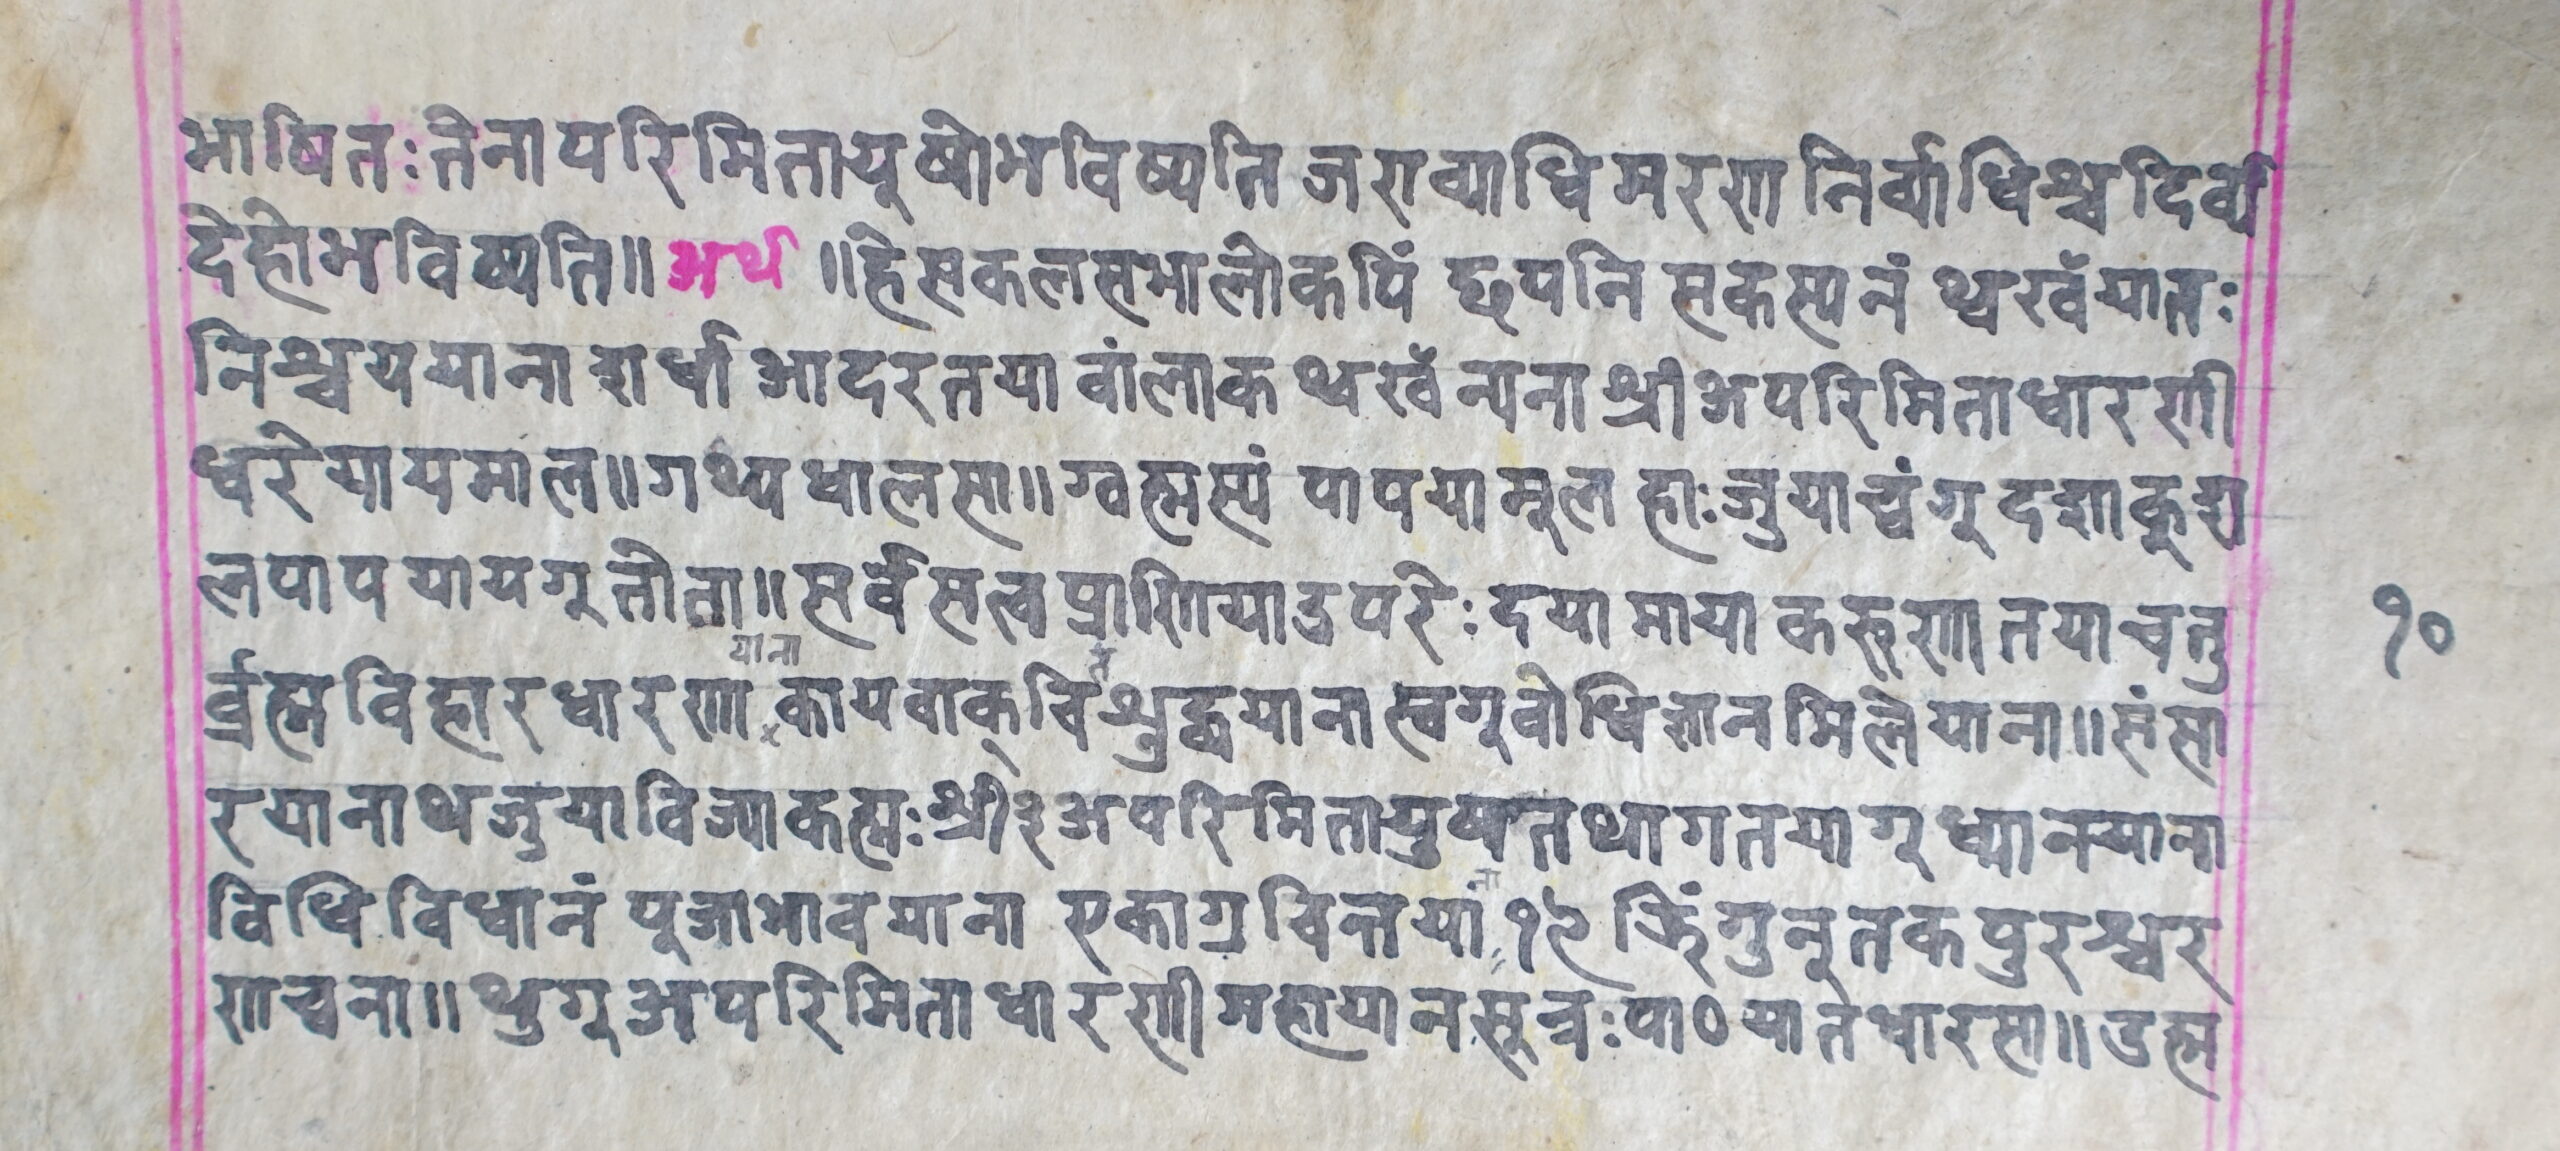 भाषितः तेनापरिमितायूषोभविष्यति जराव्याधिमरणा निर्व्याधिश्च दिव्य
देहोभविष्यति॥ अर्थ ॥हेसकलसभालोकपिं छपनि सकस्यनं थ्वखँयातः
निश्चययाना शर्धा आदरतया वांलाक थखँन्यना श्रीअपरिमिताधारणी
धरेयायमाल॥गथ्यधालसा॥ग्वह्मस्यं पापयामूल हाःजुयाच्वंगू दशाकूश
लपापयायगूतोता॥सर्वसत्वप्राणियाउपरेः दयामायाकरूणातयाचतु
र्ब्रह्मविहारधारणा याना कायवाक्चित्तशुद्धयाना स्वगूबोधिज्ञानमिलेयाना॥संसा
रयानाथजुयाविज्याकह्मःश्री३अपरिमितायुषतथागतयागू ध्यानयाना
विधिविधानं पूजाभावयाना एकाग्रचित्तयाना १२ न्हिंगुनूतक पुरश्चर
णच्वना॥थुगूअपरिमिताधारणीमहायानसूत्रःपाठयातधारसा॥उह्म
१०